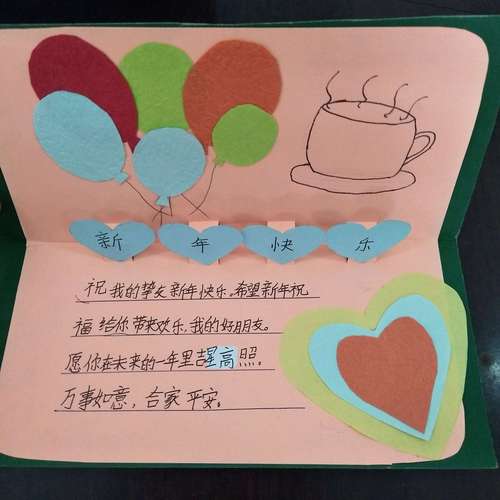 新年快乐
祝我的挚友新年快乐,希望新年祝
福给你带来欢乐,我的好朋友。
愿你在未来的一年里吉星高照。
万事如意,合家平安。